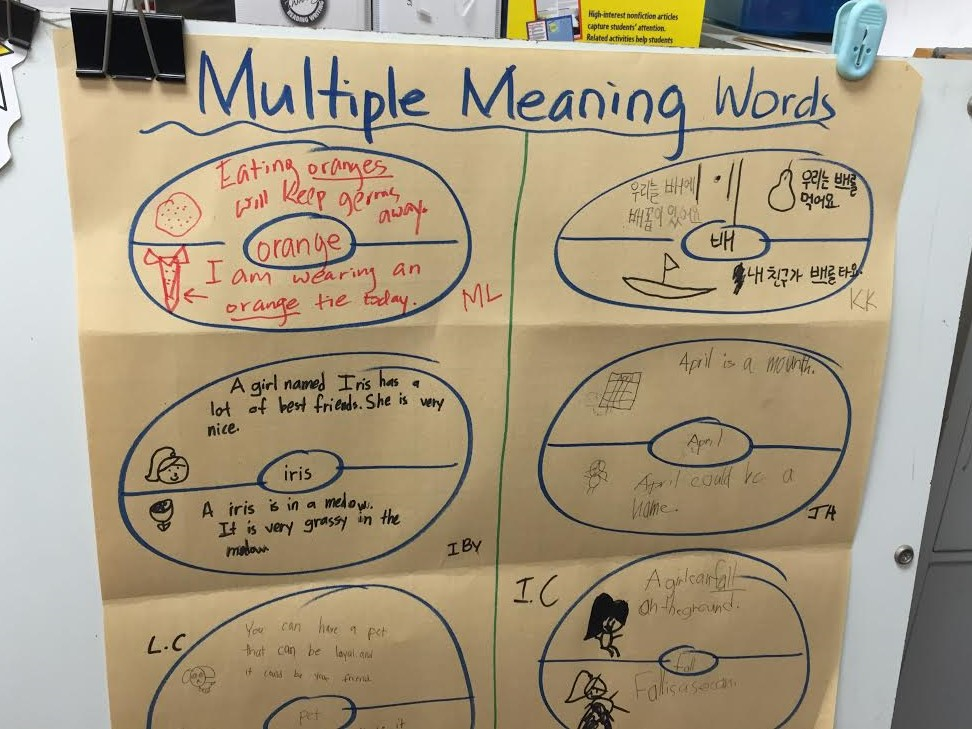 High-interest nonfiction articles
capture students' attention.
Related activities help students
Multiple Meaning Words
Eating oranges
will keep germs
away.
orange
I am wearing an
orange tie today.
ML
우리는 배에
배꼽이 있어요
우리는 배를
먹어요
배
내 친구가 배를 타요.
KK
A girl named Iris has a
lot of best friends. She is very
nice.
iris
A iris is in a medow.
It is very grassy in the
medow
IBY
April is a mounth.
April
April could be a
name.
JH
L.C
You can have a pet
that can be loyal and
it could be your friend
pet
it
I.C
A girl can fall
on the ground.
fall
Fall is a